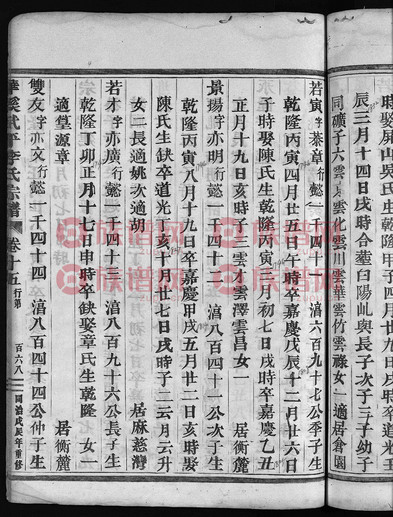 時娶屏山吳氏生乾隆甲子四月
辰三月十四日戌時合塟臼陽屺與長子次子三子幼子
同礦子六雲𡊮雲化雲川雲華雲竹雲祿女一適居倉園
若寅字泰章行懿一千四十一 滈六百九十七公季子生
乾隆丙寅四月廿五日午時卒嘉慶戊辰十二月廿六日
子時娶陳氏生乾隆丙寅三月初七日戌時卒嘉慶乙丑
正月十九日亥時子三雲才雲澤雲昌女一
景揚字亦明行懿一千四十二 滈八百四十一公次子生
乾隆丙寅八月十九日卒嘉慶甲戌五月廿二日亥時娶
陳氏生缺卒道光丁亥十月廿七日戌時子二云月云升
女二長適姚次適胡 居麻慈灣
若才字亦廣行懿一千四十三 滈八百九十六公長子生
乾隆丁卯正月十七日申時卒缺娶章氏生乾隆 女一
適堂源章 居衡麓
雙友字亦文行懿一千四十四 滈八百四十四公仲子生
李氏宗譜 卷十五 行第 百六八 同治戊辰年重修
族譜网